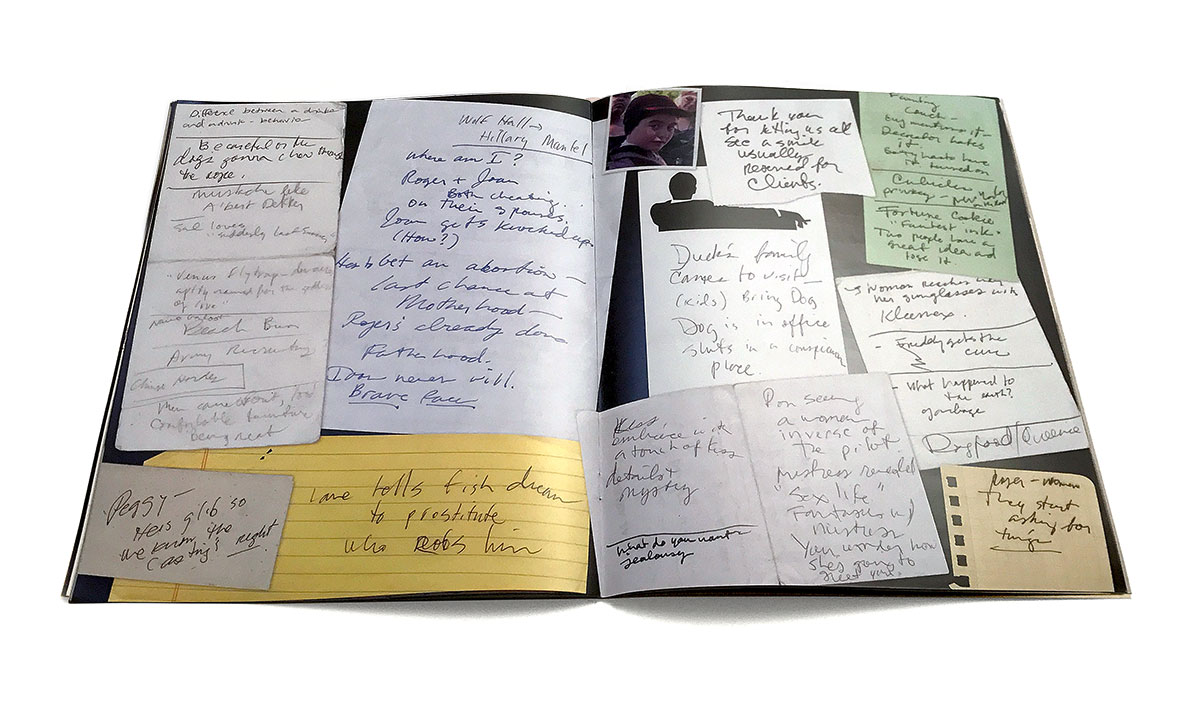 Difference between a drinker
and a drunk - behavior
Be careful or the
dogs gonna chew through
the rope.
A' best Dekker
Sal loves
"suddenly last summer"
"Venus flytrap -
named for the goddess
of love"
Peach
Army Recruiting
Change
Men came out,
comfortable furniture
being neat
Wolf Hall →
Hillary Mantel
Where am I?
Roger + Joan
Both cheating
on their spouses.
Joan gets knocked up
(How?)
Has to get an abortion —
last chance at
Motherhood —
Roger's already done
Fatherhood.
Joan never will.
Brave Face
PEGGY —
He's glib so
we know the
casting's right
Lane tells fish dream
to prostitute
who robs him
Thank you
for letting us all
see a smile
usually
reserved for
clients.
Duck's family
comes to visit
(kids) Bring Dog
Dog is in office
shits in a conspicuous
place.
Kiss,
embrace with
a touch of kiss
details +
mystery
What do you want =
jealousy
Don seeing
a woman
inverse of
the pilot
mistress revealed
"Sex life"
Fantasies w/
mistress
You wonder how
she's going to
meet you.
couch -
it -
hates
it
have
turned on
privacy -
Fortune Cookie
Two people have a
great idea and
lose it
→ Woman
her sunglasses with
Kleenex.
- Freddy gets the
cure
- What happened to
the earth?
garbage
Dogfood /
- women
They start
asking for
things